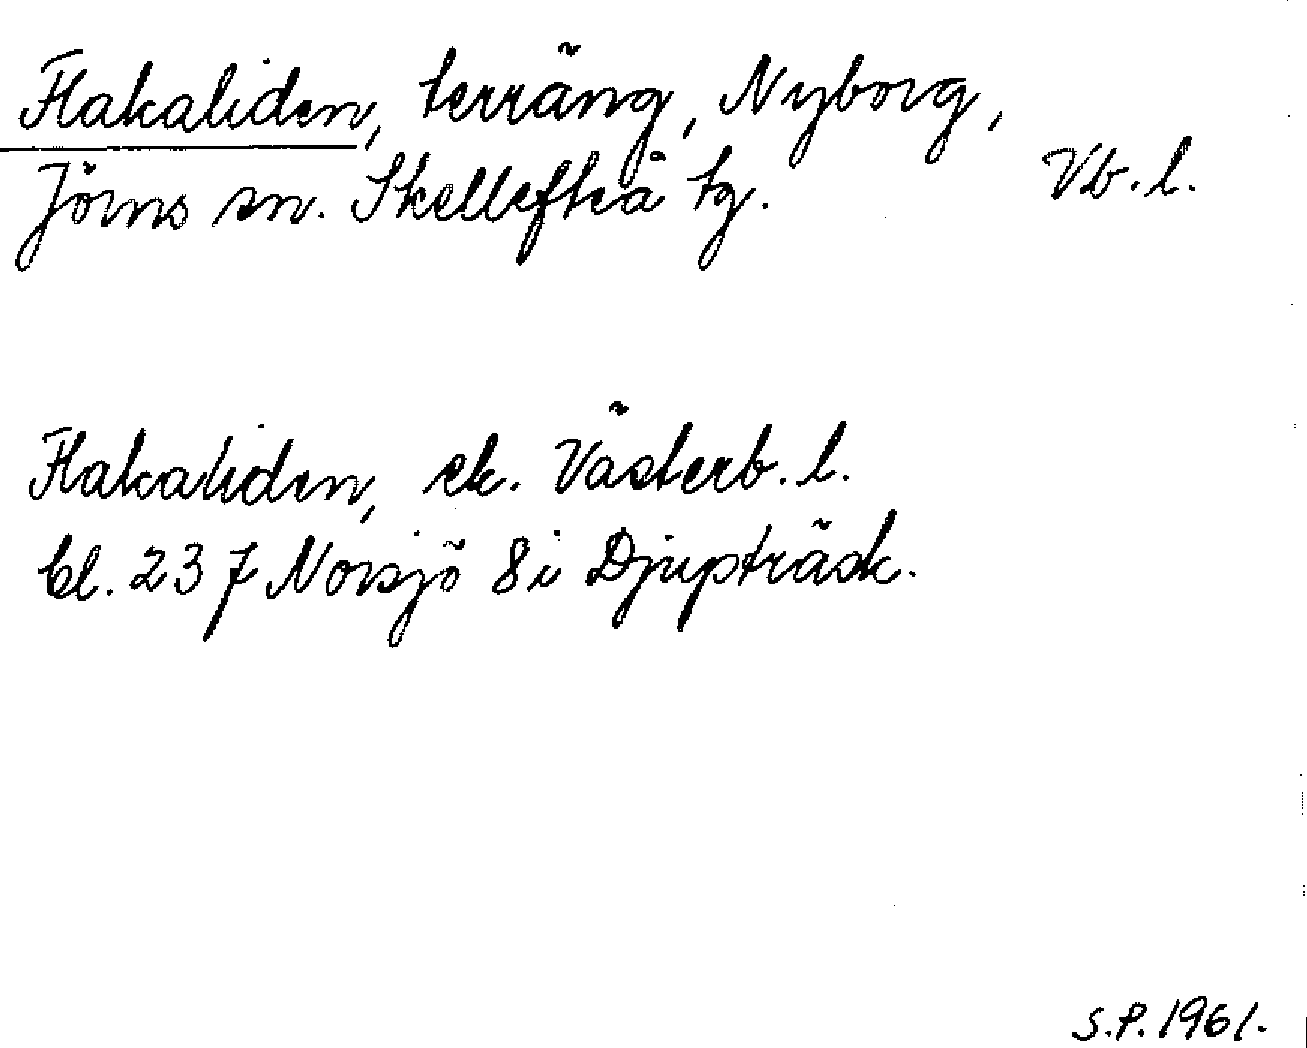 Flakaliden, terräng, Nyborg,
Jörns sn. Skellefteå tg. Vb. l.
Flakaliden, ek. Västerb. l.
bl. 237 Norsjö 8i Djupträsk.
S.P. 1961.